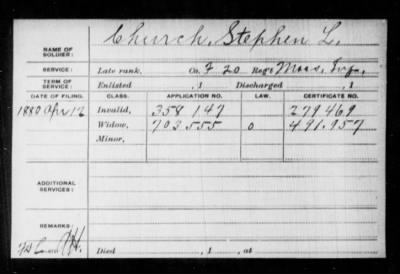 NAME OF SOLDIER: Church, Stephen L.
SERVICE: Late rank, Co. F 20 Reg't Mass. Inf.,
TERM OF SERVICE: Enlisted , 1 Discharged , 1
DATE OF FILING. CLASS. APPLICATION NO. LAW. CERTIFICATE NO.
1880 Apr 12 Invalid, 358 147 279 469
Widow, 703 555 O 491.957
Minor,
ADDITIONAL SERVICES:
REMARKS:
Died , 1 , at